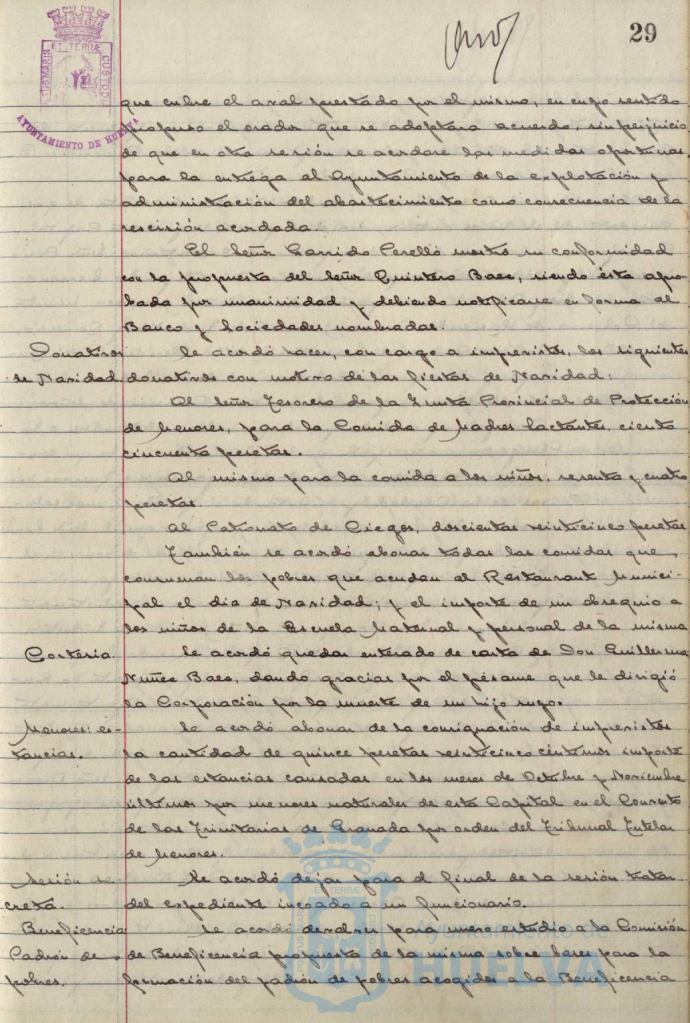 29
PORTUS MARIS ET TERRÆ CUSTODIA
AYUNTAMIENTO DE HUELVA
que cubre el aval prestado por el mismo, en cuyo sentido
propuso el orador que se adoptara acuerdo, sin perjuicio
de que en otra sesión se acordare las medidas oportunas,
para la entrega al Ayuntamiento de la explotación y
administración del abastecimiento como consecuencia de la
rescisión acordada.
El Señor Garrido Perelló mostró su conformidad
con la propuesta del Señor Quintero Baez, siendo ésta apro-
bada por unanimidad y debiendo notificarse en forma al
Banco y Sociedades nombradas.
Donativos
de Navidad
Se acordó hacer, con cargo a imprevistos, los siguientes
donativos con motivo de las fiestas de Navidad:
Al Señor Tesorero de la Junta Provincial de Protección
de Menores, para la Comida de Madres lactantes, ciento
cincuenta pesetas.
Al mismo para la comida a los niños, sesenta y cuatro
pesetas.
Al Patronato de Ciegos, doscientas veinticinco pesetas
También se acordó abonar todas las comidas que,
consuman los pobres que acudan al Restaurant Munici-
pal el dia de Navidad; y el importe de un obsequio a
los niños de la Escuela Maternal y personal de la misma
Cortesia.
Se acordó quedar enterado de carta de Don Guillermo
Nuñez Baez, dando gracias por el pésame que le dirigió
la Corporación por la muerte de un hijo suyo.
Menores: es-
tancias.
Se acordó abonar de la consignación de imprevistos
la cantidad de quince pesetas veinticinco céntimos importe
de las estancias causadas en los meses de Octubre y Noviembre
últimos por menores naturales de esta Capital en el Convento
de las Trinitarias de Granada por orden del Tribunal Tutelar
de Menores.
Sesión se-
creta.
Se acordó dejar para el final de la sesión tratar
del expediente incoado a un funcionario.
Beneficencia
Padrón de
pobres.
Se acordó devolver para nuevo estudio a la Comisión
de Beneficencia propuesta de la misma sobre bases para la
formación del padrón de pobres acogidos a la Beneficencia
Ayuntamiento
HUELVA